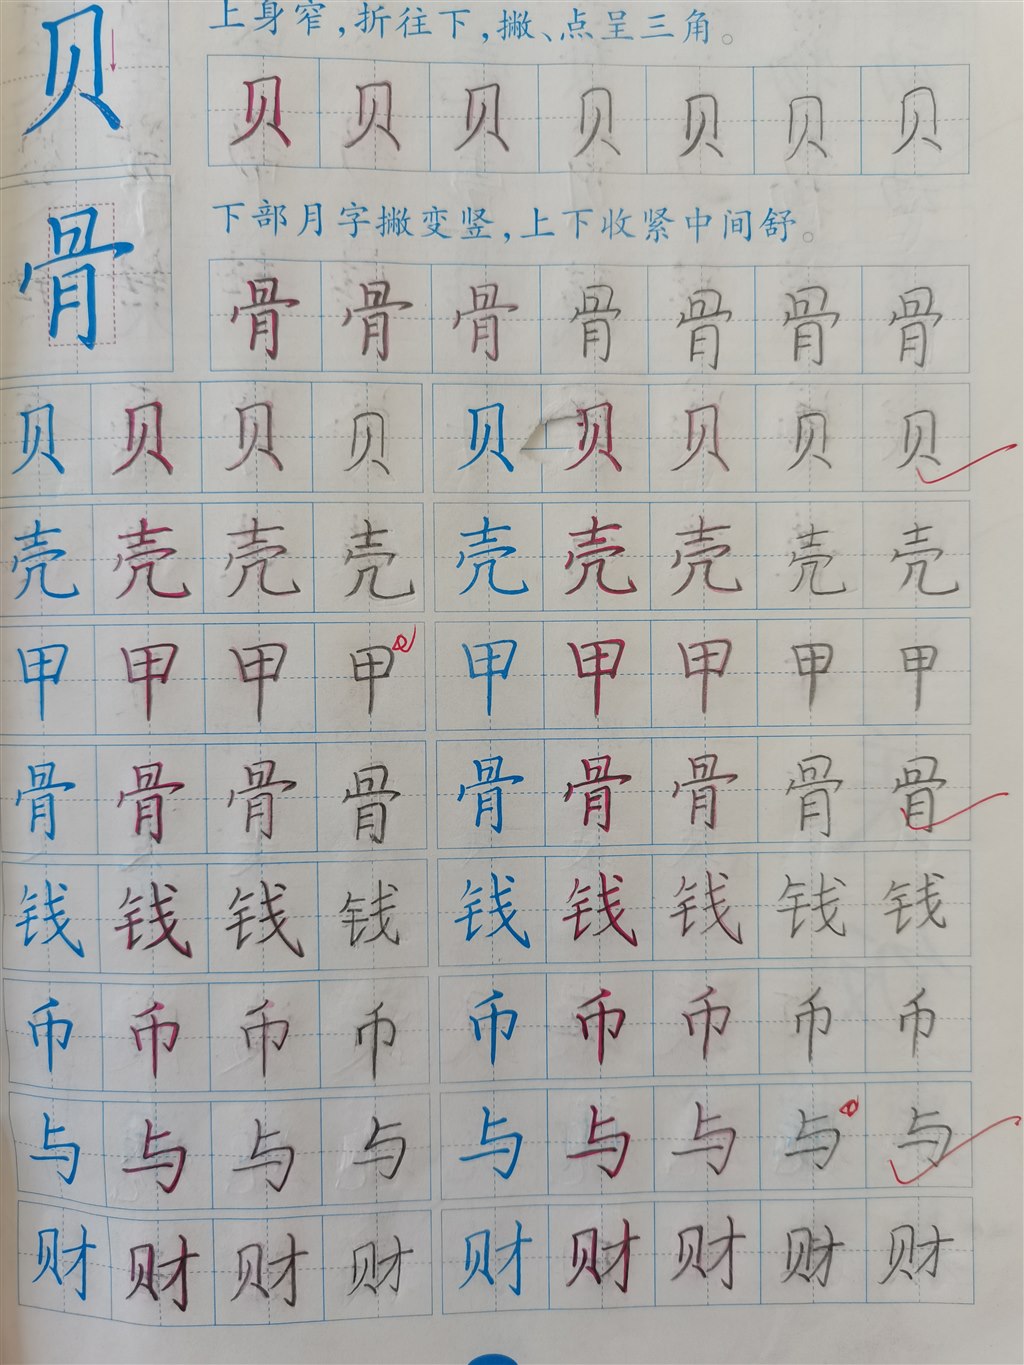 贝 上身窄,折往下,撇、点呈三角。
贝 贝 贝 贝 贝 贝 贝
骨 下部月字撇变竖,上下收紧中间舒。
骨 骨 骨 骨 骨 骨 骨
贝 贝 贝 贝 贝 贝 贝 贝 贝
壳 壳 壳 壳 壳 壳 壳 壳 壳
甲 甲 甲 甲 甲 甲 甲 甲 甲
骨 骨 骨 骨 骨 骨 骨 骨 骨
钱 钱 钱 钱 钱 钱 钱 钱 钱
币 币 币 币 币 币 币 币 币
与 与 与 与 与 与 与 与 与
财 财 财 财 财 财 财 财 财